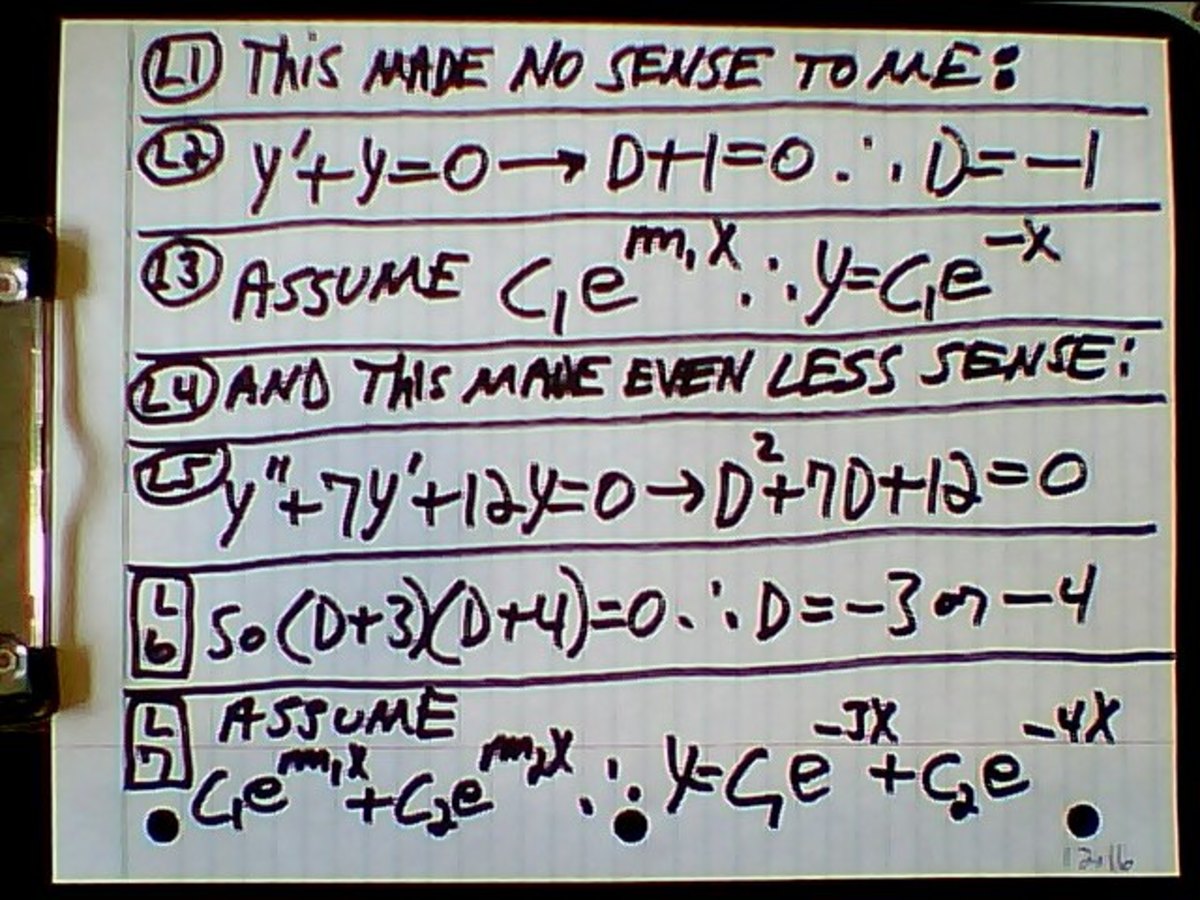 L1 THiS MADE NO SENSE TO ME:
L2 y'+y=0→D+1=0 ∴ D=-1
L3 ASSUME C₁e^m₁x ∴ y=C₁e^-x
L4 AND THiS MADE EVEN LESS SENSE:
L5 y"+7y'+12y=0→D²+7D+12=0
L6 So (D+3)(D+4)=0 ∴ D=-3 or -4
L7 ASSUME
C₁e^m₁x+C₂e^m₂x ∴ y=C₁e^-3x+C₂e^-4x